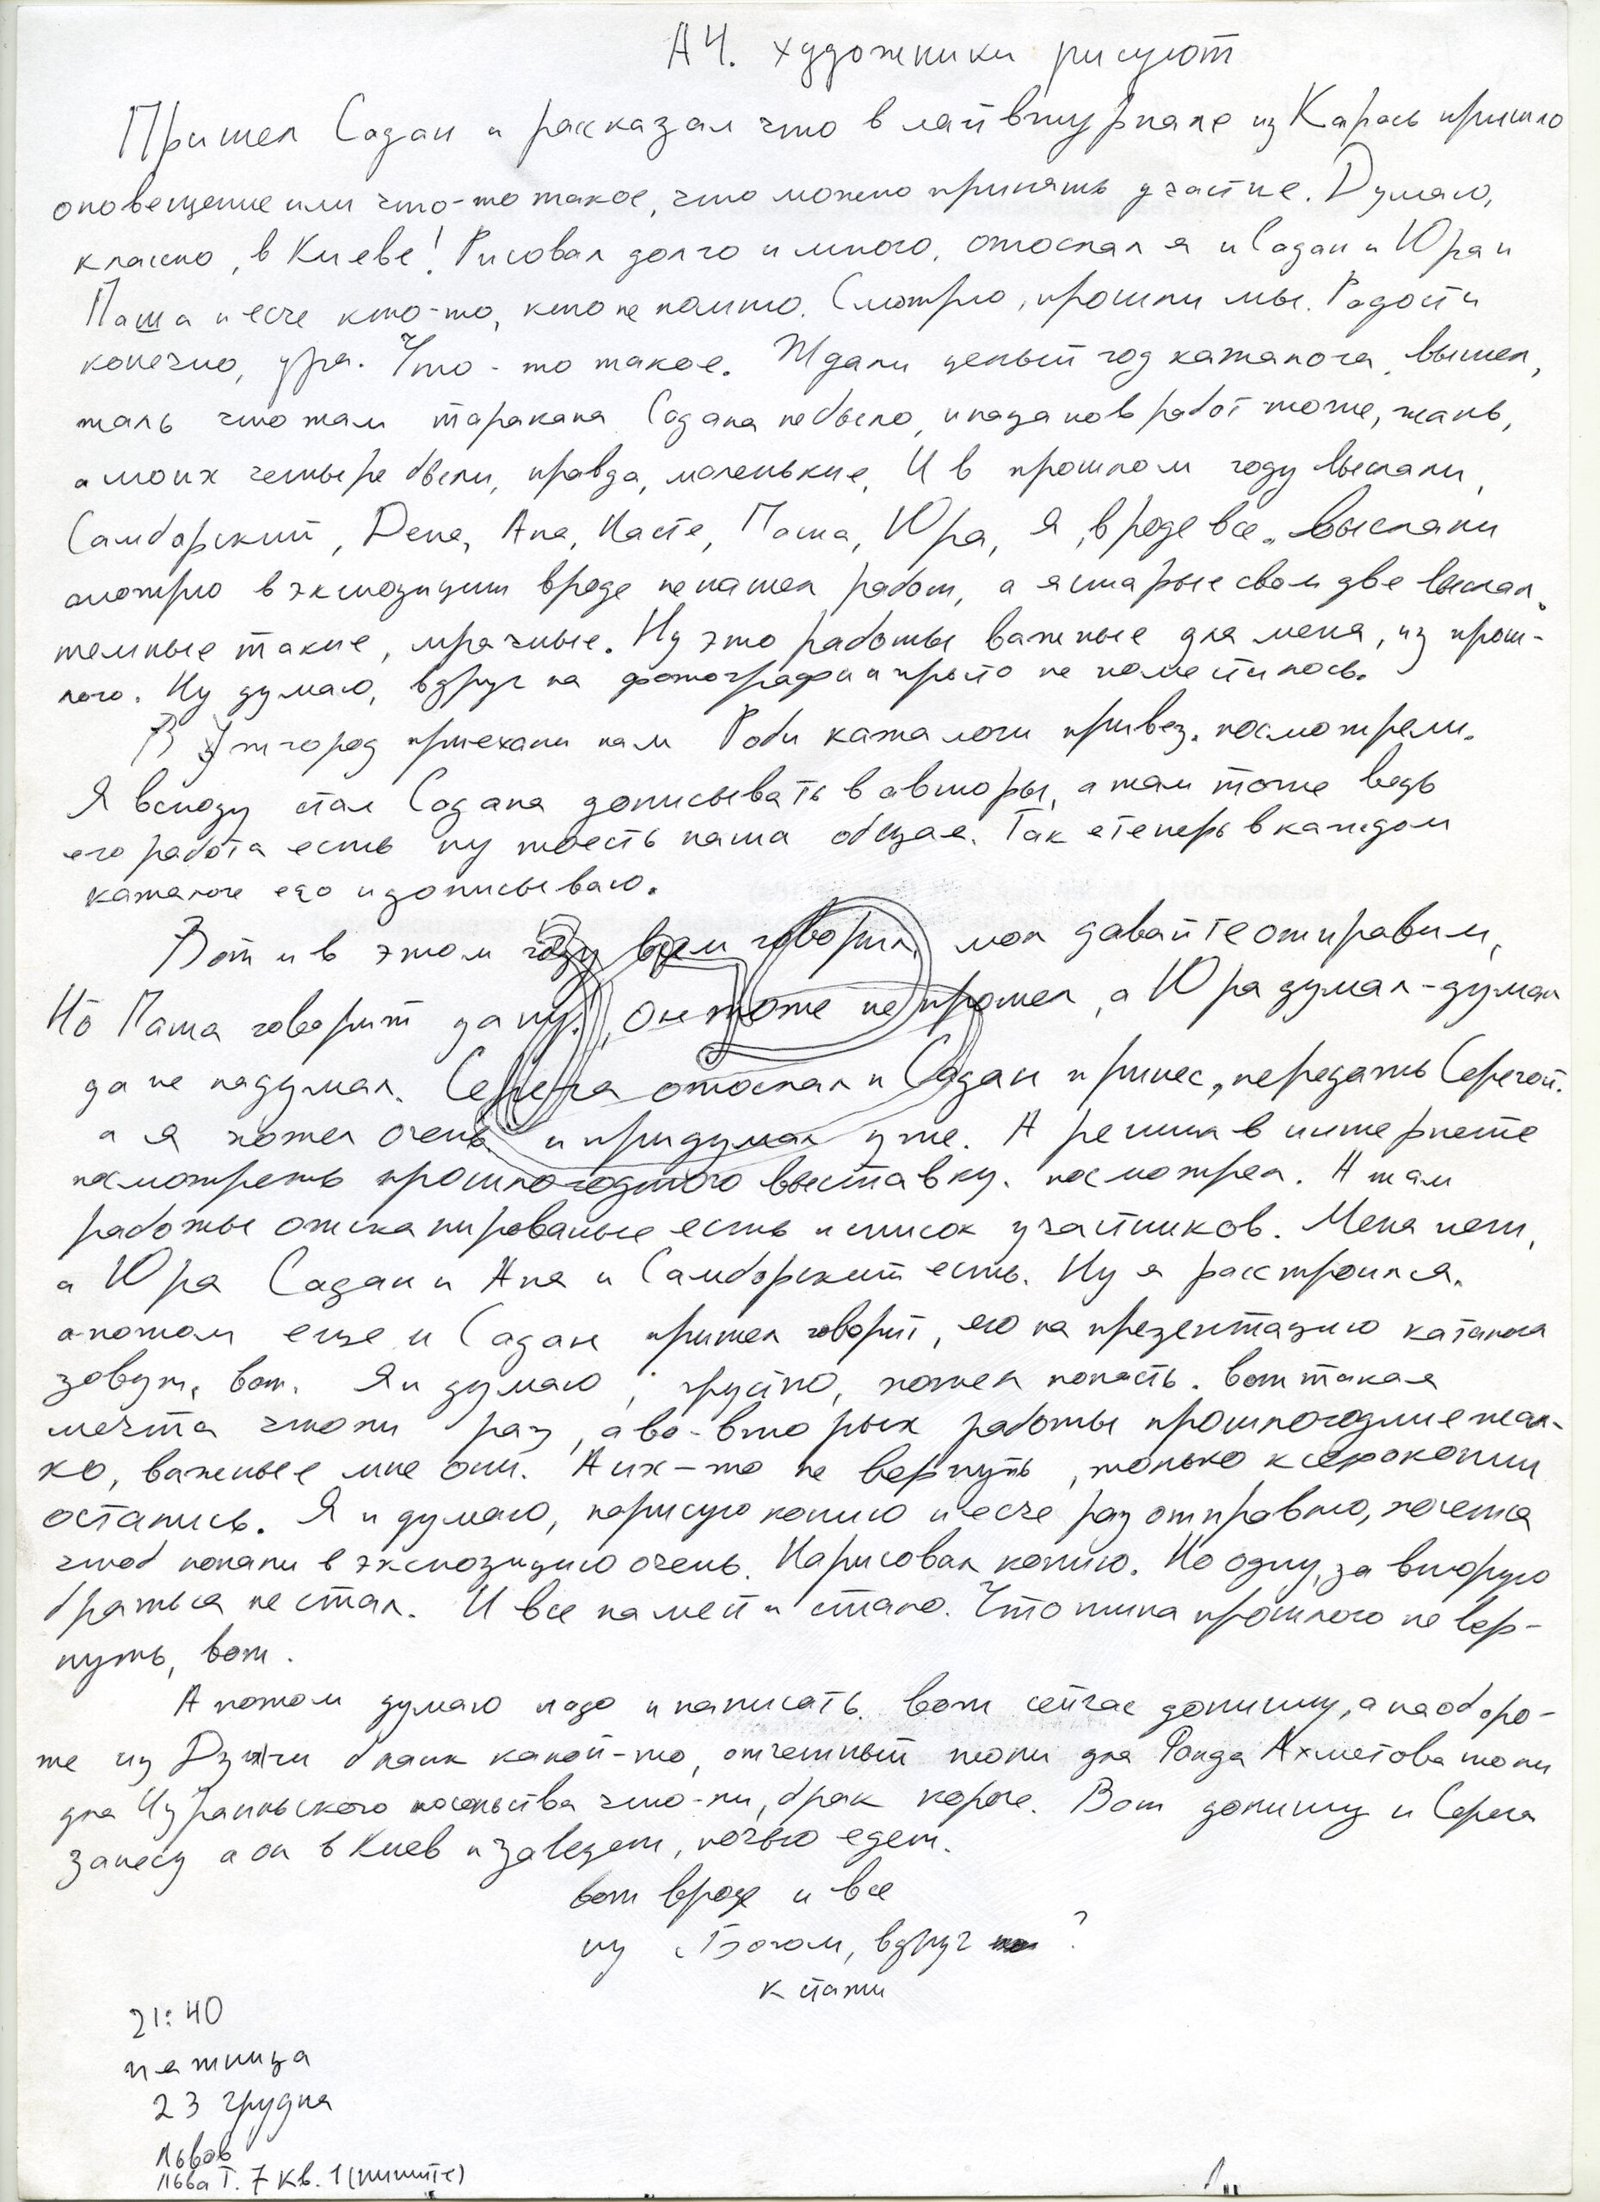 А4. художники рисуют
Пришел Садан и рассказал что в лайвжурнале из Карась пришло
оповещение или что-то такое, что можно принять участие. Думаю,
классно, в Киеве! Рисовал долго и много, отослал я и Садан и Юра и
Паша и есче кто-то, кто не помню. Смотрю, прошли мы. Радости
конечно, ура. Что-то такое. Ждали целый год каталога, вышел,
жаль что там таракана Садана небыло, и пацанов работ тоже, жаль,
а моих четыре были, правда, маленькие. И в прошлом году выслали,
Самборский, Dена, Аня, Настя, Паша, Юра, я, вроде все. Выслали
смотрю в экспозиции вроде не нашел работ, а я старые свои две выслал.
темные такие, мрачные. Ну это работы важные для меня, из прош-
лого. Ну думаю, вдруг на фотографии просто не поместилось.
В Ужгород приехали нам Роби каталоги привез. посмотрели.
Я всюду стал Садана дописывать в авторы, а там тоже ведь
его работа есть ну тоесть наша общая. Так я теперь в каждом
каталоге его и дописываю.
Вот и в этом году всем говорил, мол давайте отправим,
Но Паша говорит да ну, он тоже не прошел, а Юра думал-думал
да не надумал. Серега отослал и Садан принес, передать Серегой.
а я хотел очень и придумал уже. А решил в интернете
посмотреть прошлогоднюю выставку. посмотрел. А там
работы отсканированые есть и список участников. Меня нет,
а Юра Садан и Аня и Самборский есть. Ну я расстроился.
а потом еще и Садан пришел говорит, его на презентацию каталога
зовут, вот. Я и думаю, грустно, хотел попасть. Вот такая
мечта чтоли раз, а во-вторых работы прошлогодние жал-
ко, важные мне они. А их-то не вернуть, только ксерокопии
остались. Я и думаю, нарисую копию и есче раз отправлю, хочется
чтоб попали в экспозицию очень. Нарисовал копию. Но одну, за вторую
браться не стал. И все на меня стало. Что типа прошлого не вер-
нуть, вот.
А потом думаю надо и написать. Вот сейчас допишу, а на оборо-
те из Dзиги бланк какой-то, отчетный толи для Фонда Ахметова толи
для Израильского посольства что-ли, брак короче. Вот допишу и Сереге
занесу а он в Киев и завезет, ночью едет.
вот вроде и все
ну с Богом, вдруг ?
кстати
21:40
пятница
23 грудня
Львов
Льва Т. 7 кв. 1 (пишите)